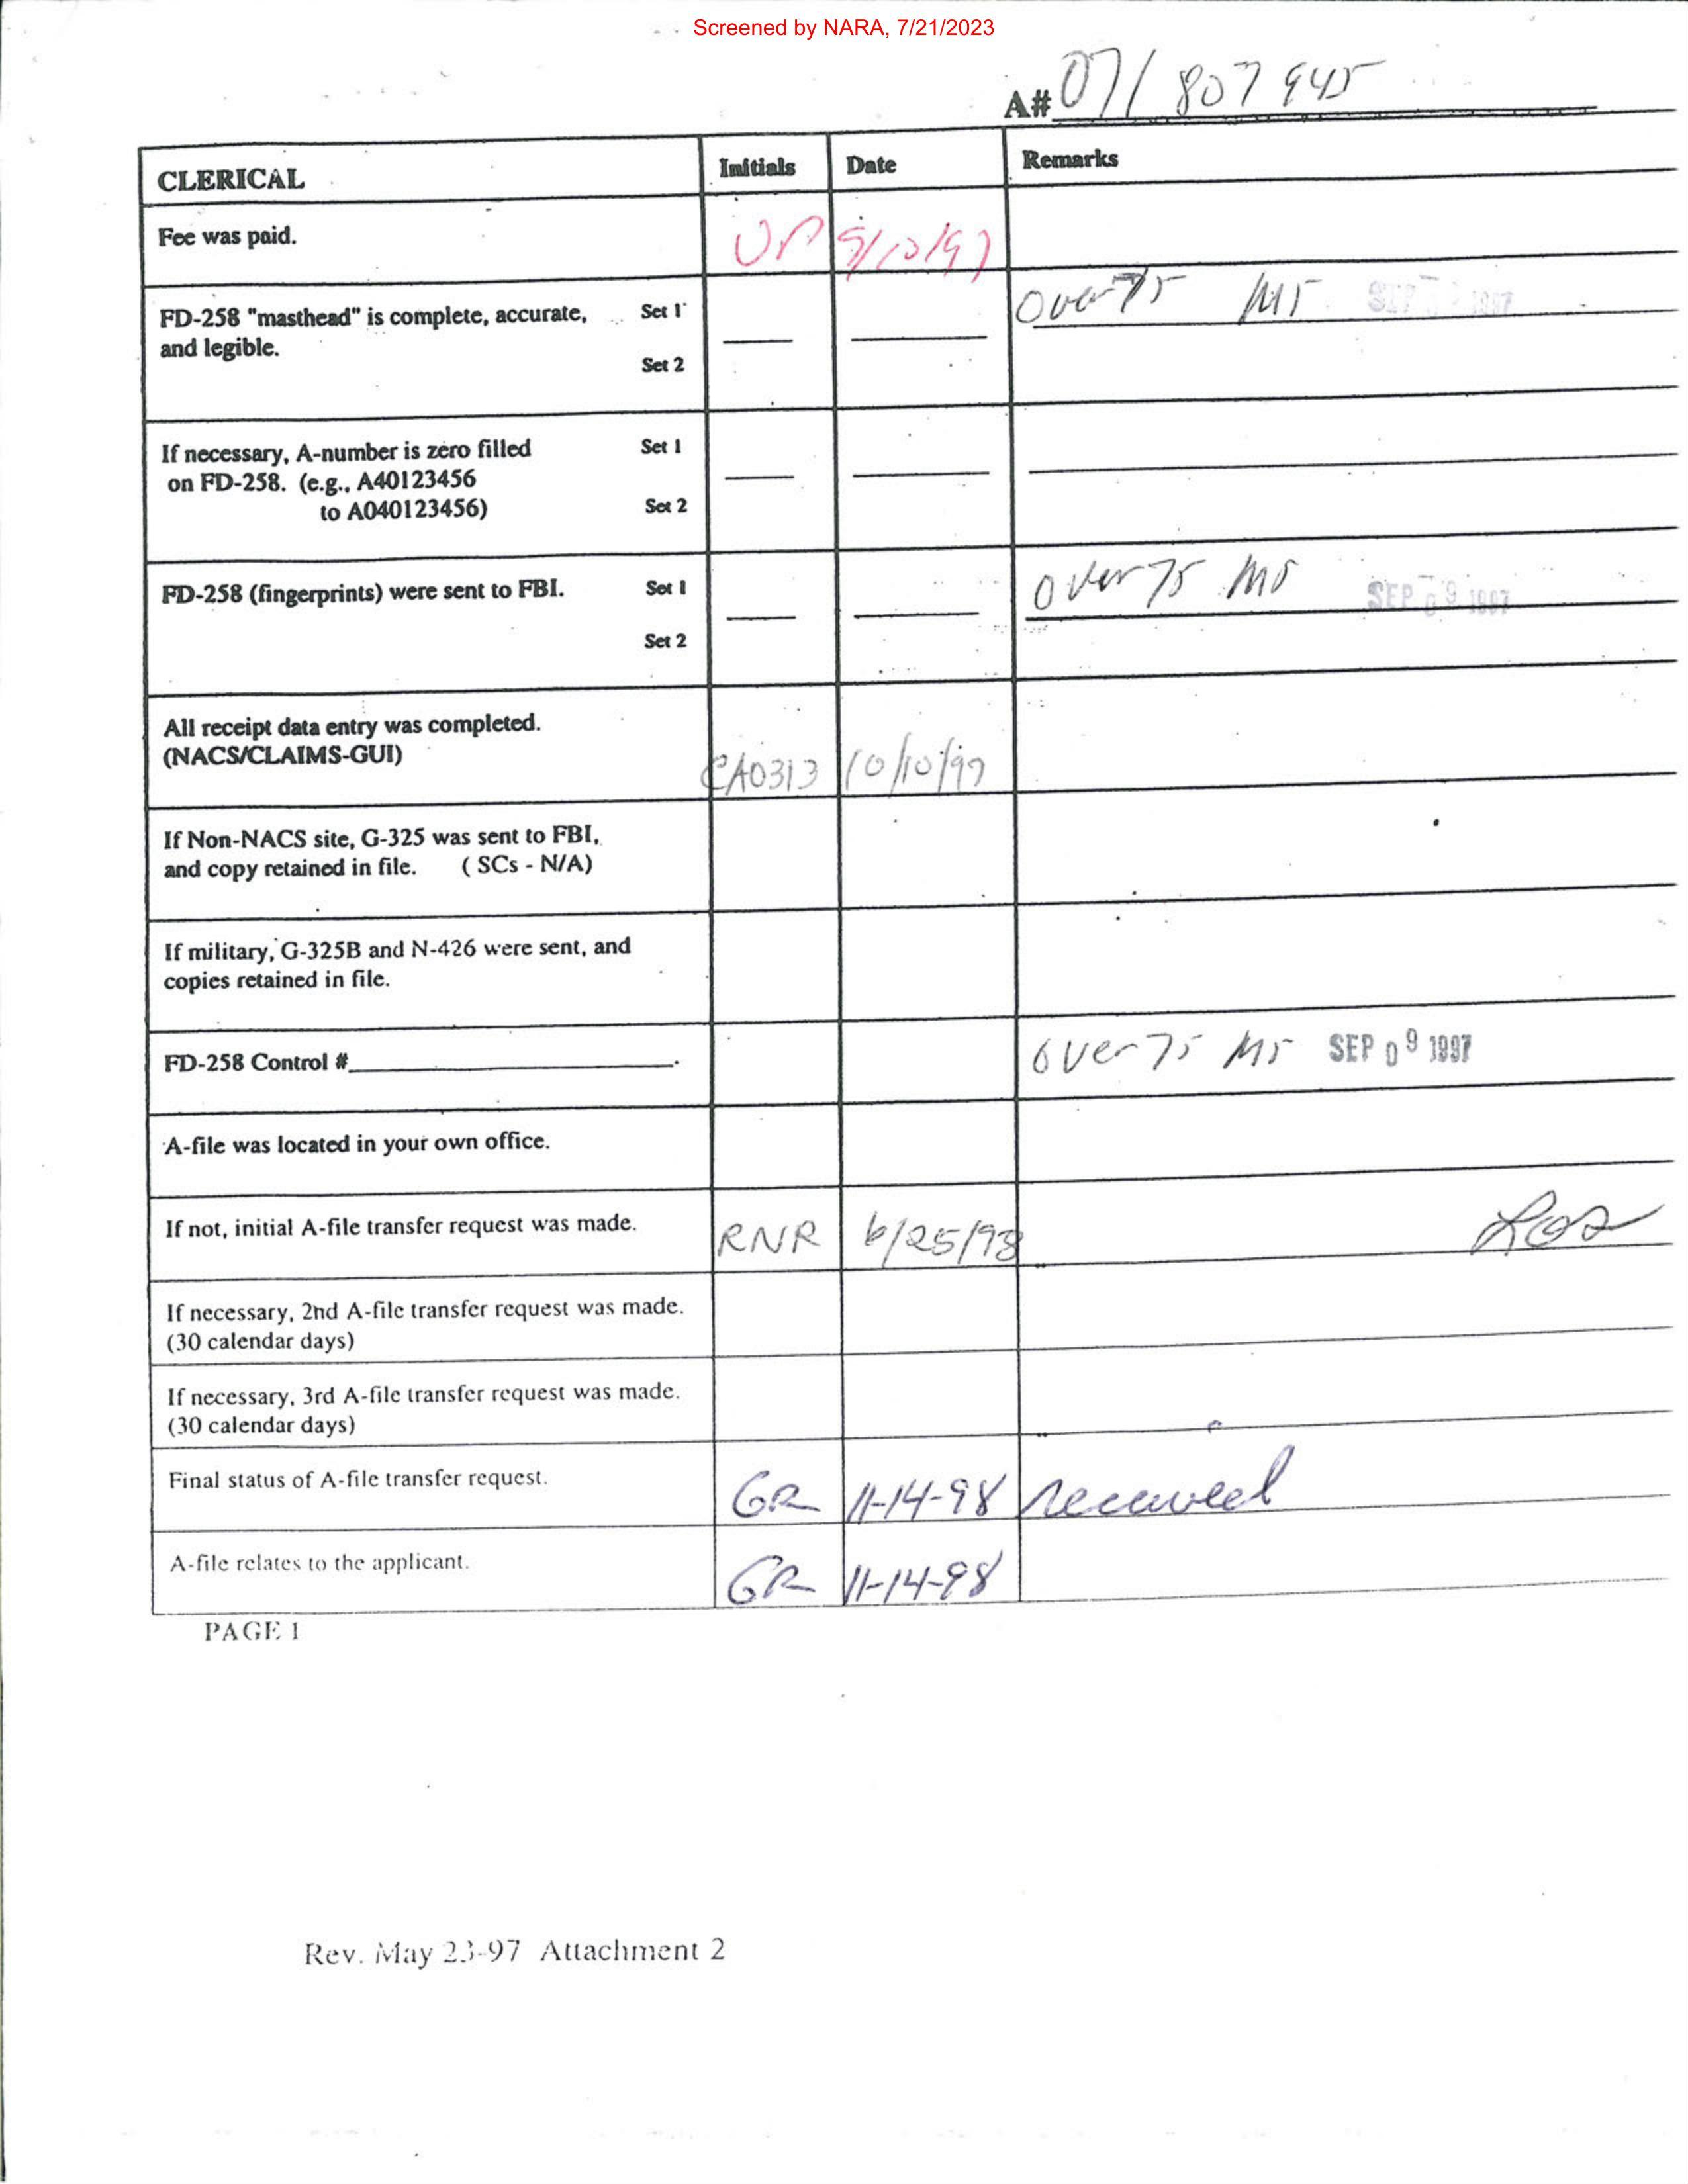 Screened by NARA, 7/21/2023
A# 071 807 945
CLERICAL Initials Date Remarks
Fee was paid. 9/10/97
FD-258 "masthead" is complete, accurate, Set 1 over 75 MS SEP 1997
and legible.
Set 2
If necessary, A-number is zero filled Set 1
on FD-258. (e.g., A40123456
to A040123456) Set 2
FD-258 (fingerprints) were sent to FBI. Set 1 over 75 MS SEP 09 1997
Set 2
All receipt data entry was completed.
(NACS/CLAIMS-GUI) CA0313 10/10/97
If Non-NACS site, G-325 was sent to FBI,
and copy retained in file. ( SCs - N/A)
If military, G-325B and N-426 were sent, and
copies retained in file.
FD-258 Control # over 75 MS SEP 09 1997
A-file was located in your own office.
If not, initial A-file transfer request was made. RNR 6/25/98 Los
If necessary, 2nd A-file transfer request was made.
(30 calendar days)
If necessary, 3rd A-file transfer request was made.
(30 calendar days)
Final status of A-file transfer request. GR 11-14-98 received
A-file relates to the applicant. GR 11-14-98
PAGE 1
Rev. May 23-97 Attachment 2